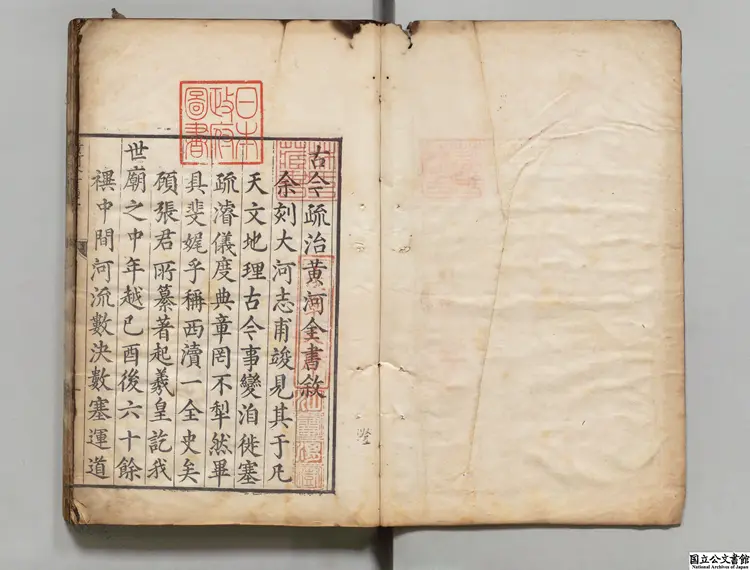 日本
政府
圖書
古今疏治黄河全書敘
余刻大河志甫竣見其于凡
天文地理古今事變洎徙塞
疏濬儀度典章罔不犁然畢
具斐娓乎稱西瀆一全史矣
頋張君所纂著起羲皇訖我
世廟之中年越已酉後六十餘
禩中間河流數決數塞運道
国立公文書館
National Archives of Japan